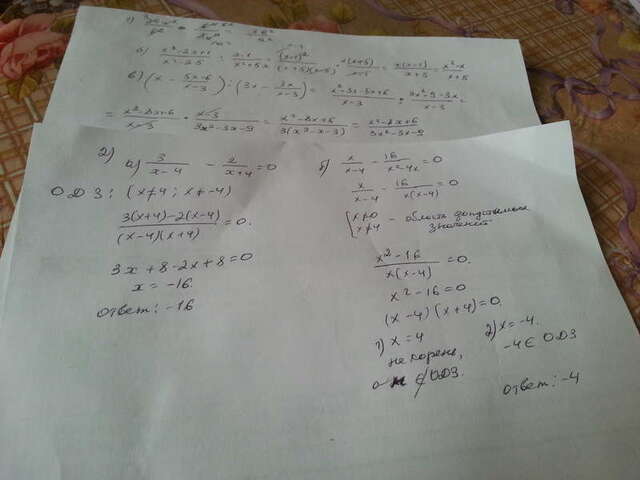 б) x²-2x+1 / x²-25 : x-1 / x²+5x = (x-1)² / (x+5)(x-5) · x(x+5) / x-1 = x(x-1) / x+5 = x²-x / x+5
в) (x - 5x-6 / x-3) : (3x - 2x / x-3) = x²-3x-5x+6 / x-3 · 3x²-9-3x =
= x²-8x+6 / x-3 · x-3 / 3x²-3x-9 = x²-8x+6 / 3(x²-x-3) = x²-8x+6 / 3x²-3x-9
2) a) 3 / x-4 - 2 / x+4 = 0
ОДЗ: (x≠4; x≠-4)
3(x+4)-2(x-4) / (x-4)(x+4) = 0.
3x+8-2x+8=0
x = -16.
ответ: -16
б) x / x-4 - 16 / x²-4x = 0
x / x-4 - 16 / x(x-4) = 0
{x≠0 x≠4 - область допустимых значений
x²-16 / x(x-4) = 0.
x²-16=0
(x-4)(x+4)=0.
1) x=4
не корень,
∉ ОДЗ.
2) x=-4.
-4 ∈ ОДЗ
ответ: -4